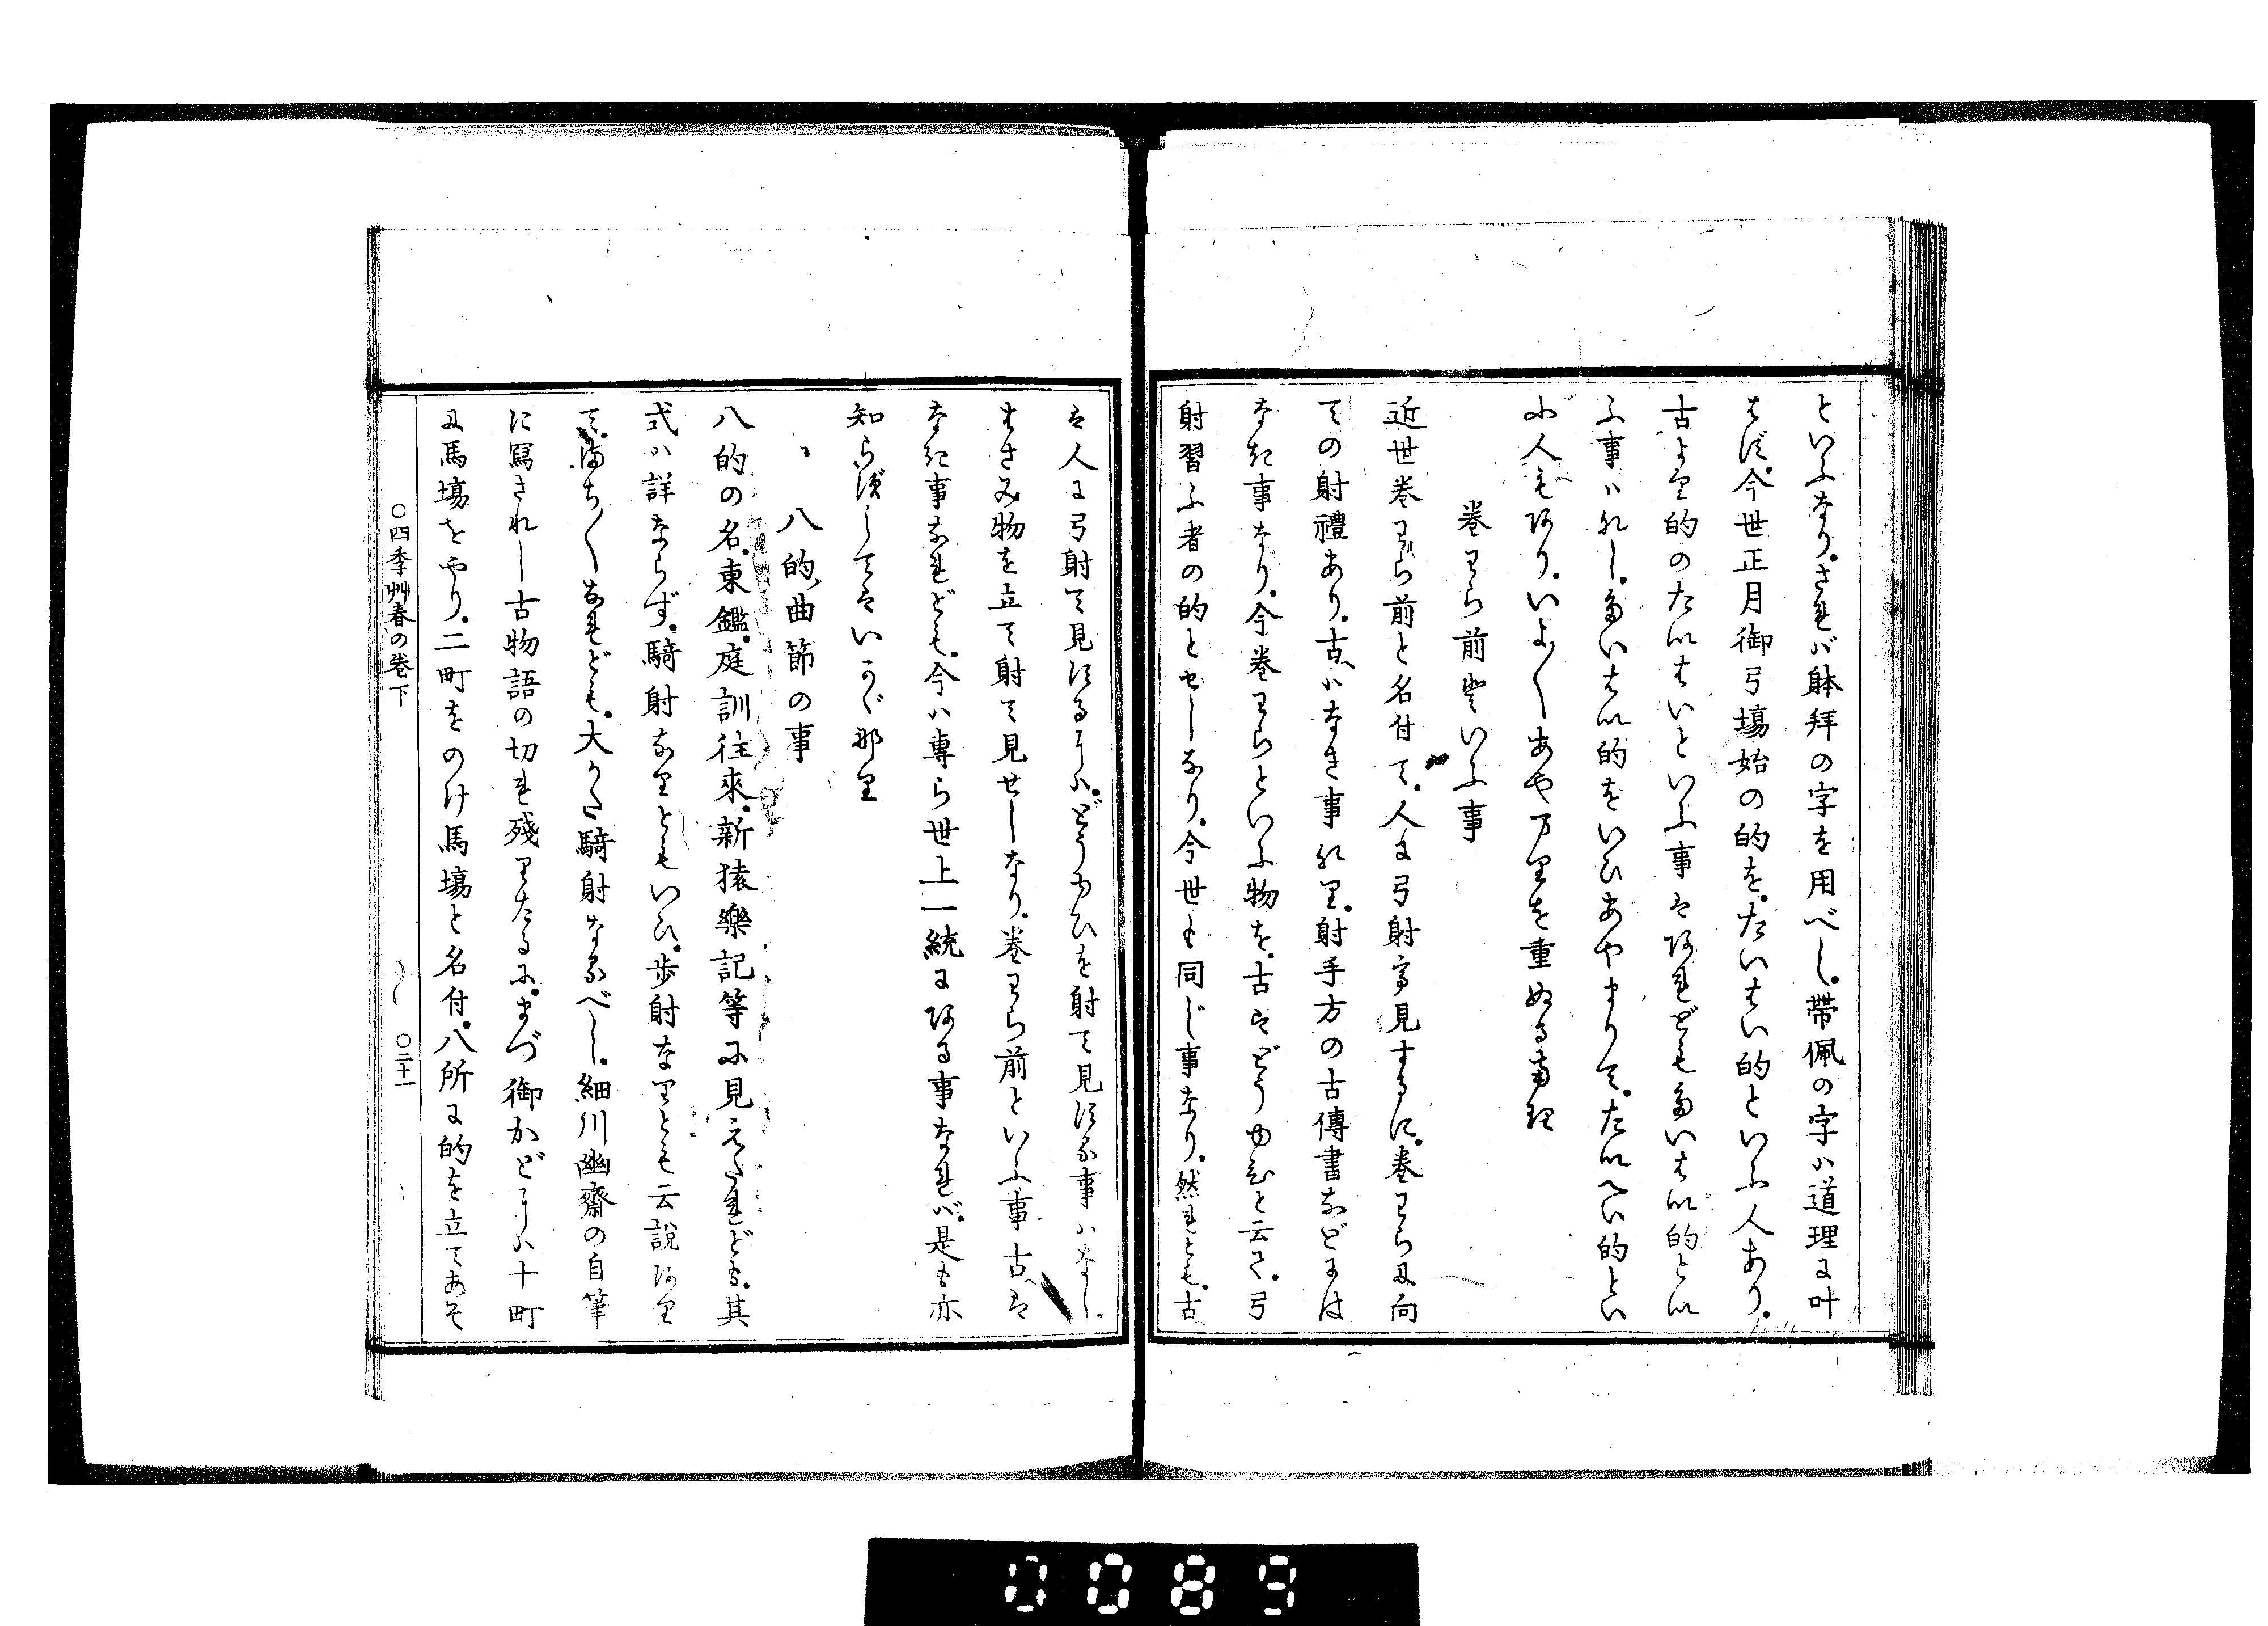 といふなり。されバ躰拜の字を用べし。帶佩の字ハ道理に叶
はず。今世正月御弓塲始の的を。たいはい的といふ人あり。
古より的のたいはいといふ事はあれどもたいはい的とい
ふ事ハなし。たいはい的をいひあやまりて。たいへい的とい
ふ人もあり。いよ〱あやまりを重ぬるなり
卷わら前といふ事
近世卷わら前と名付て。人に弓射て見するに。卷わらに向
ての射禮あり。古ハなき事なり。射手方の古傳書などには
なき事なり。今卷わらといふ物を。古はどうゆひと云て。弓
射習ふ者の的とせしなり。今世も同じ事なり。然れとも。古
は人に弓射て見するにハ。どうゆひを射て見する事ハなし。
はさみ物を立て射て見せしなり。卷わら前といふ事古は
なき事なれども。今ハ專ら世上一統にある事なれバ。是も亦
知らずしてはいかゞ那り
八的曲節の事
八的の名。東鑑。庭訓徃來。新猿樂記等に見えたれども。其
式ハ詳ならず。騎射なりともいひ。歩射なりとも云説あり
て。まち〱なれども。大かた騎射なるべし。細川幽齋の自筆
に寫されし古物語の切れ殘りたるに。まづ御かどにハ十町
に馬塲をやり。二町をのけ馬塲と名付。八所に的を立てあそ
〇四季艸春の卷下
〇二十一
0089